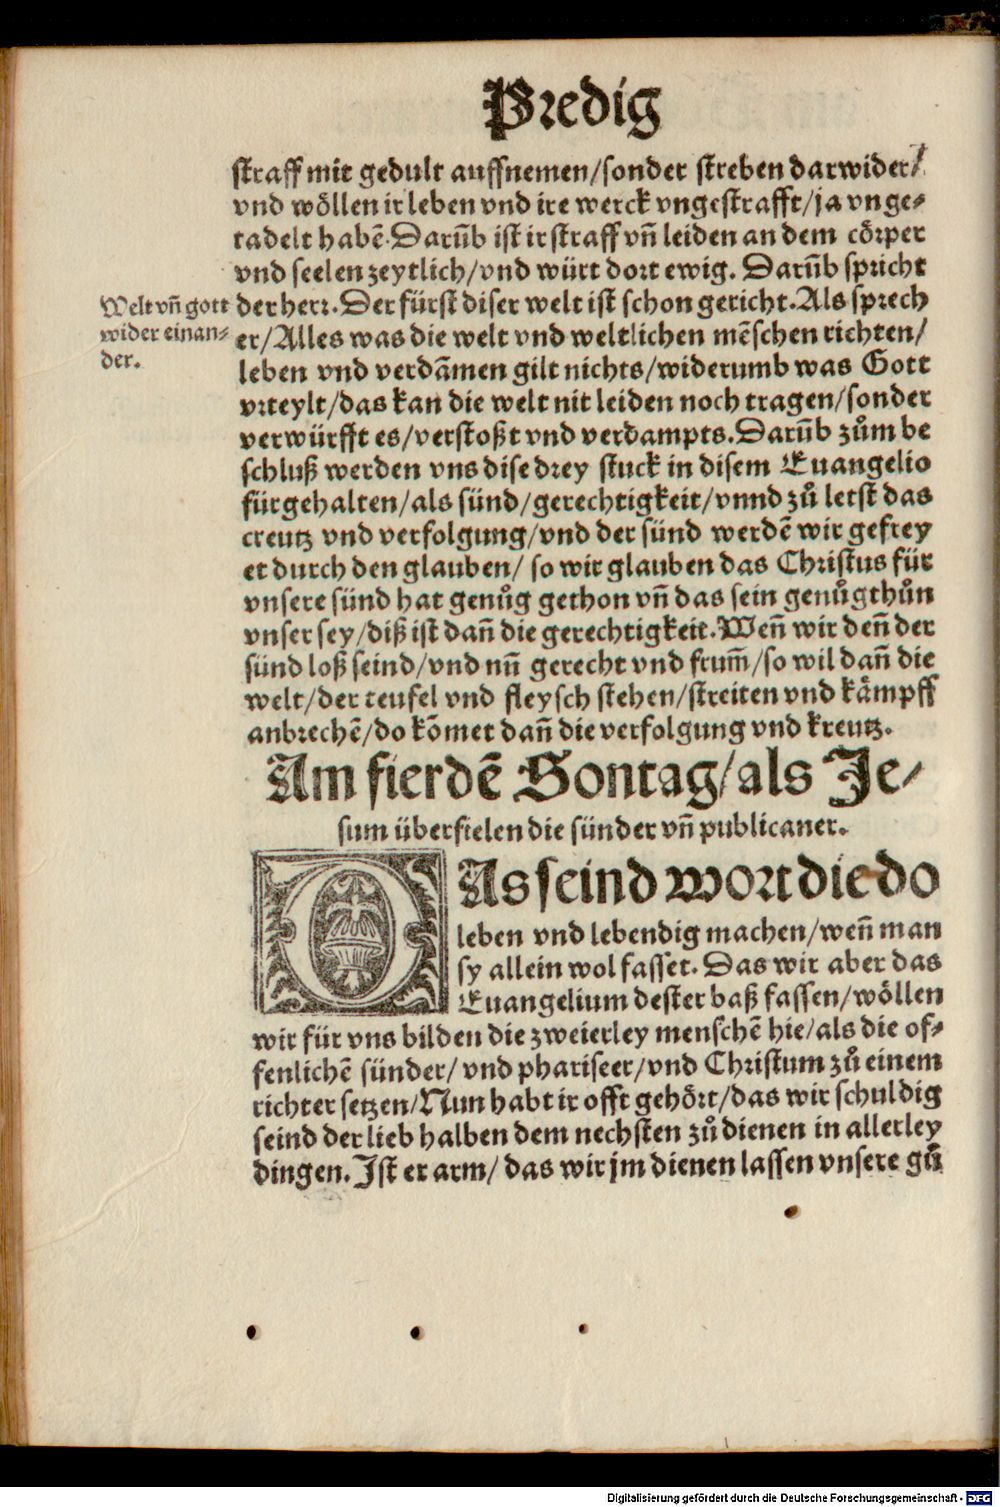 Predig
straff mit gedult auffnemen/sonder streben darwider/
vnd wöllen ir leben vnd ire werck vngestrafft/ja vnge⸗
tadelt habē. Darūb ist ir straff vn̄ leiden an dem cörper
vnd seelen zeytlich/vnd würt dort ewig. Darūb spricht
Welt vn̄ gott
wider einan⸗
der.
der herr. Der fürst diser welt ist schon gericht. Als sprech
er/Alles was die welt vnd weltlichen mēschen richten/
leben vnd verdāmen gilt nichts/widerumb was Gott
vrteylt/das kan die welt nit leiden noch tragen/sonder
verwürfft es/verstoßt vnd verdampts. Darūb zům be
schluß werden vns dise drey stuck in disem Euangelio
fürgehalten/als sünd/gerechtigkeit/vnnd zů letst das
creutz vnd verfolgung/vnd der sünd werdē wir gefrey
et durch den glauben/ so wir glauben das Christus für
vnsere sünd hat genůg gethon vn̄ das sein genůgthůn
vnser sey/diß ist dan̄ die gerechtigkeit. Wen̄ wir den̄ der
sünd loß seind/vnd nun̄ gerecht vnd frum̄/so wil dan̄ die
welt/der teufel vnd fleysch stehen/streiten vnd kämpff
anbrechē/do kōmet dan̄ die verfolgung vnd kreutz.
Am fierdē Sontag/als Je⸗
sum überfielen die sünder vn̄ publicaner.
DAs seind wort die do
leben vnd lebendig machen/wen̄ man
sy allein wol fasset. Das wir aber das
Euangelium dester baß fassen/wöllen
wir für vns bilden die zweierley menschē hie/als die of⸗
fenlichē sünder/ vnd phariseer/vnd Christum zů einem
richter setzen/Nun habt ir offt gehört/das wir schuldig
seind der lieb halben dem nechsten zů dienen in allerley
dingen. Ist er arm/ das wir jm dienen lassen vnsere gů
Digitalisierung gefördert durch die Deutsche Forschungsgemeinschaft - DFG